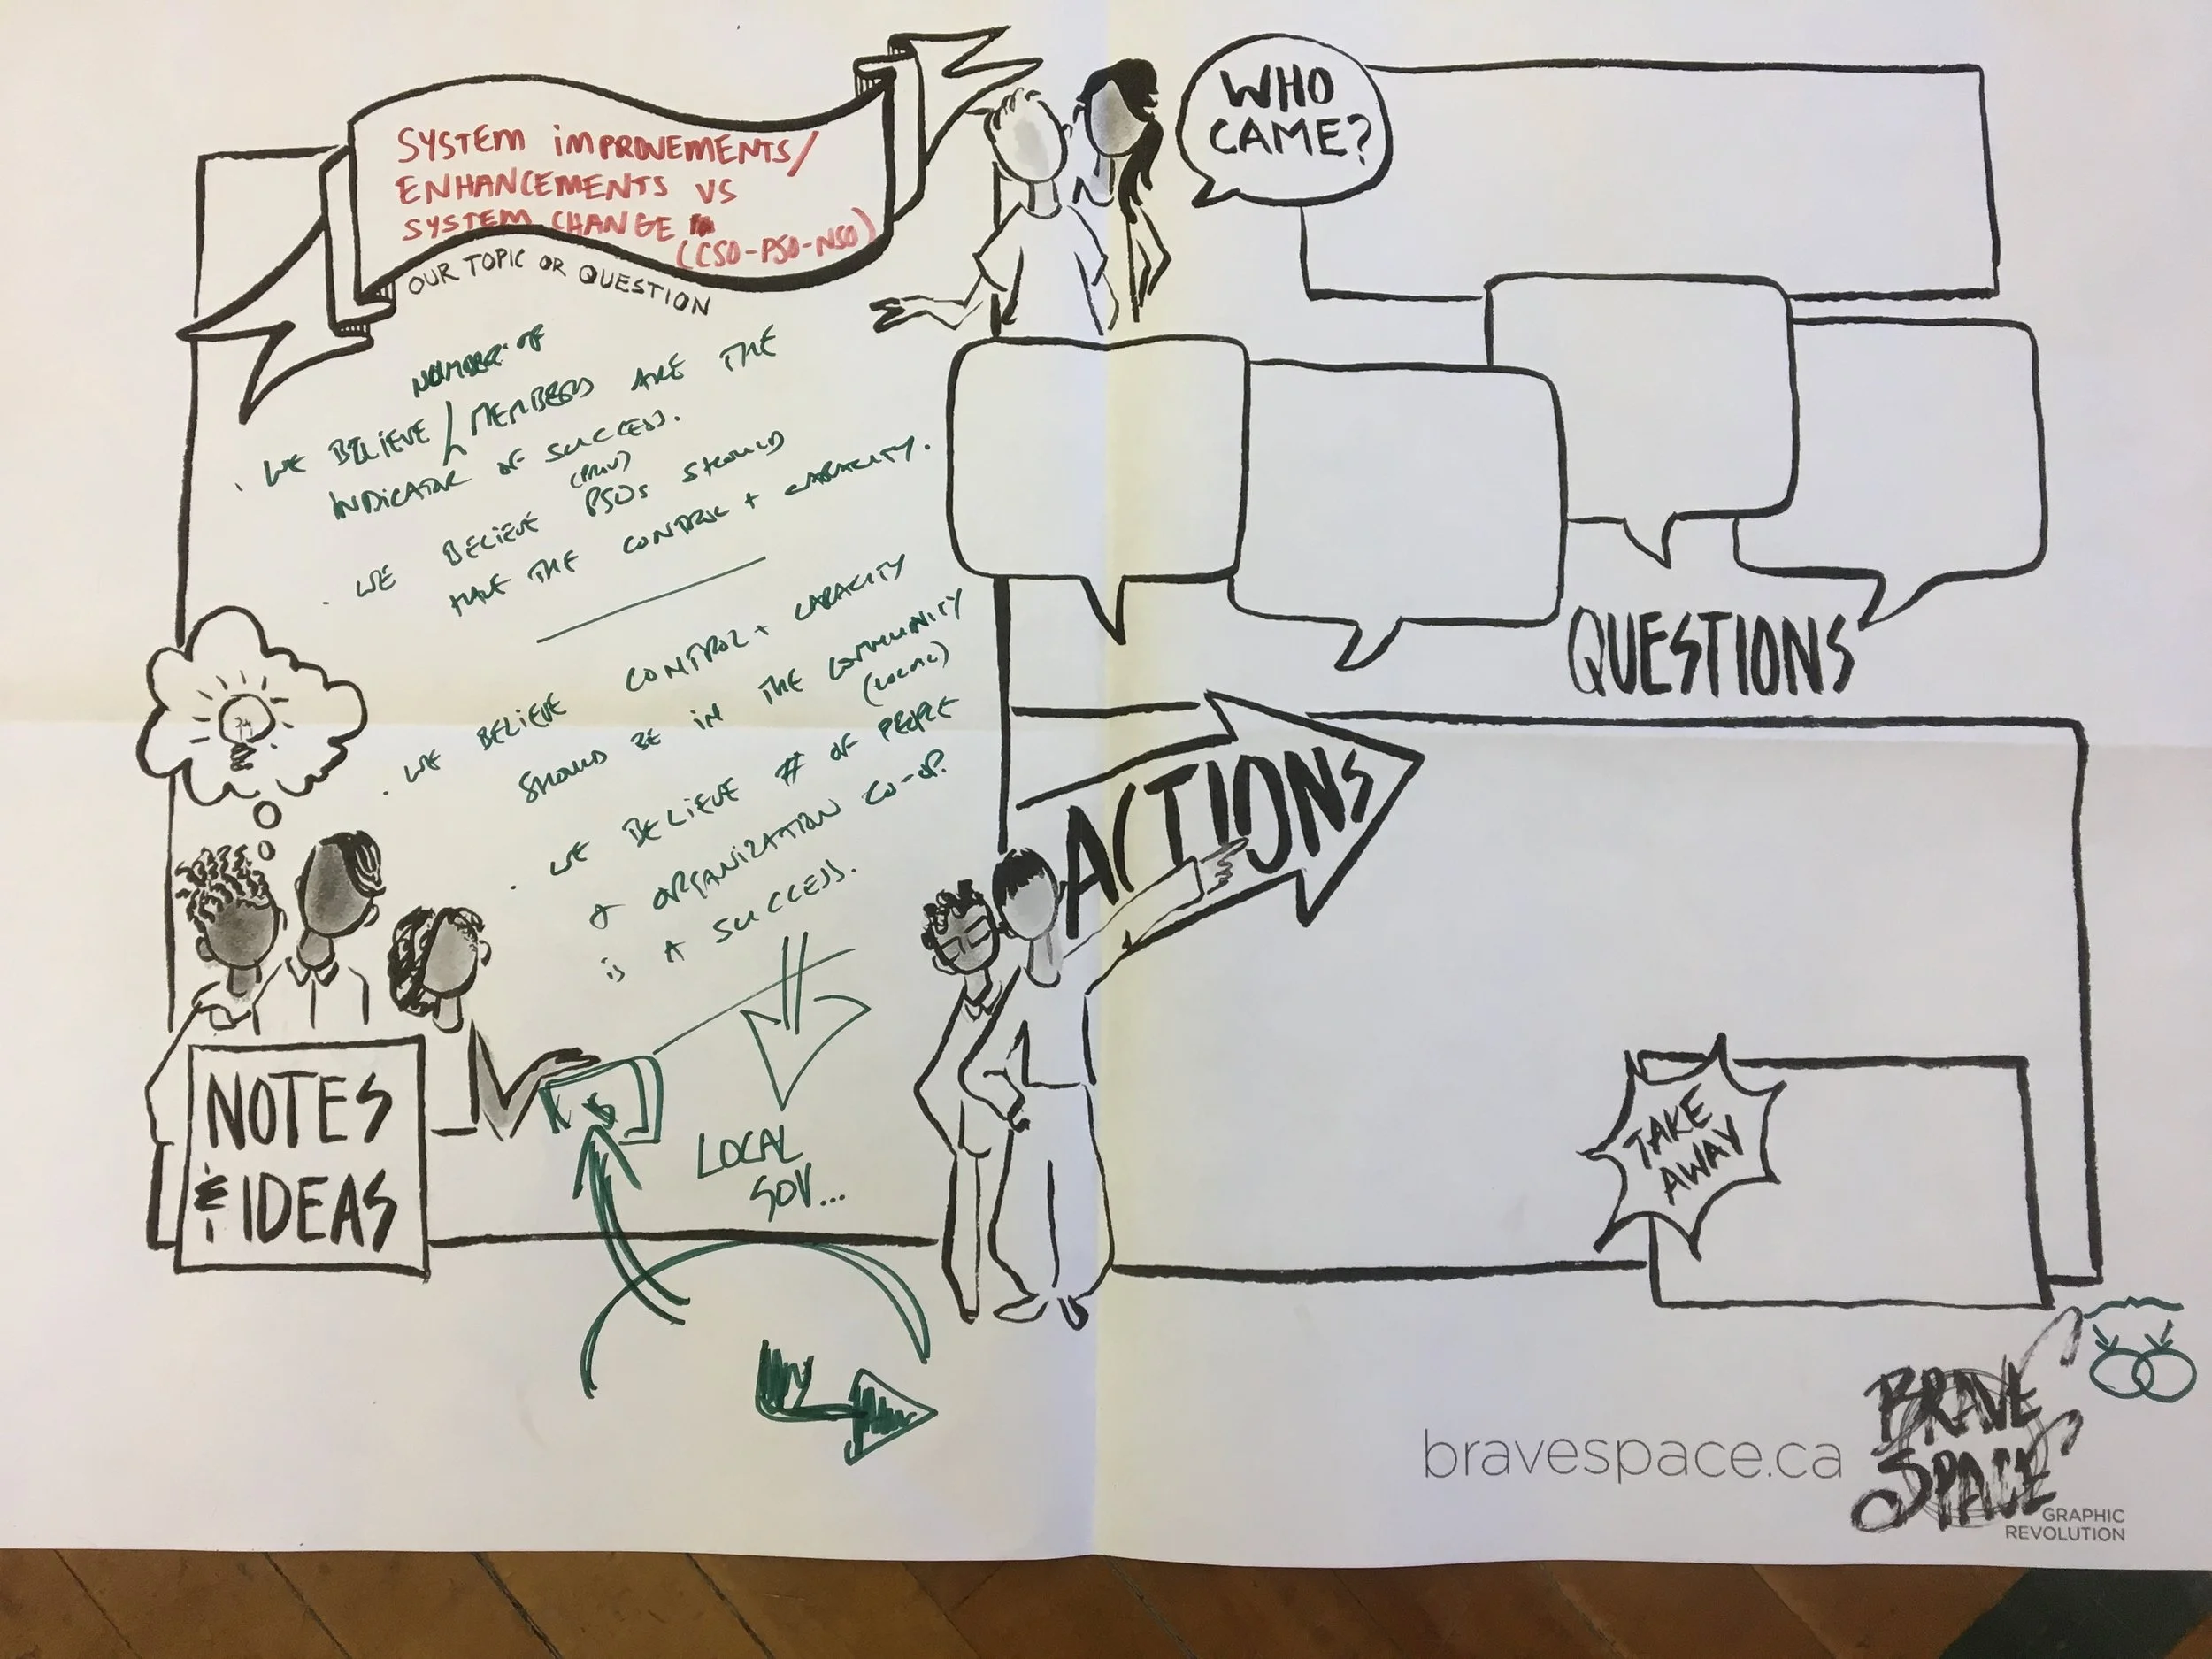 SYSTEM IMPROVEMENTS/
ENHANCEMENTS VS
SYSTEM CHANGE
(CSO-PSO-NSO)
OUR TOPIC OR QUESTION
NUMBER OF
. WE BELIEVE / MEMBERS ARE THE
INDICATOR OF SUCCESS.
(PROV)
. WE BELIEVE PSOs SHOULD
HAVE THE CONTROL + CAPACITY.
. WE BELIEVE CONTROL + CAPACITY
SHOULD BE IN THE COMMUNITY
(LOCAL)
. WE BELIEVE # OF PEOPLE
& ORGANIZATION CO-OP.
IS A SUCCESS.
LOCAL
GOV...
$
NOTES
& IDEAS
WHO
CAME?
QUESTIONS
ACTIONS
TAKE
AWAY
bravespace.ca
BRAVE
SPACE
GRAPHIC
REVOLUTION